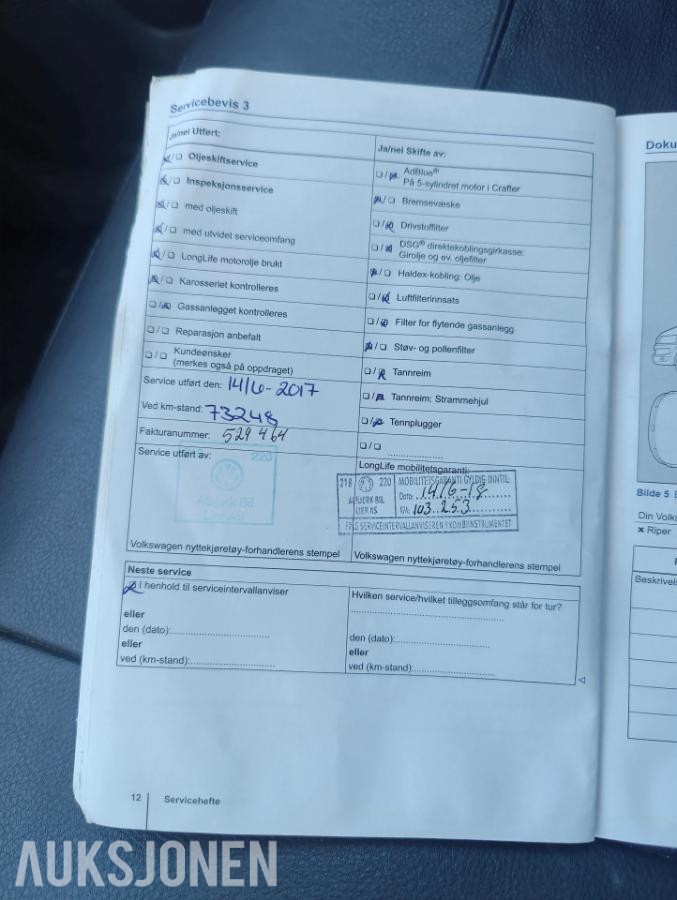 Servicebevis 3
Ja/nei Utført:
Oljeskiftservice
Inspeksjonsservice
med oljeskift
med utvidet serviceomfang
LongLife motorolje brukt
Karosseriet kontrolleres
Gassanlegget kontrolleres
Reparasjon anbefalt
Kundeønsker
(merkes også på oppdraget)
Service utført den: 14/6-2017
Ved km-stand: 73248
Fakturanummer: 529464
Service utført av:
220
Volkswagen nyttekjøretøy-forhandlerens stempel
Ja/nei Skifte av:
AdBlue®
På 5-sylindret motor i Crafter
Bremsevæske
Drivstoffilter
DSG® direktekoblingsgirkasse:
Girolje og ev. oljefilter
Haldex-kobling: Olje
Luftfilterinnsats
Filter for flytende gassanlegg
Støv- og pollenfilter
Tannreim
Tannreim: Strammehjul
Tennplugger
LongLife mobilitetsgaranti:
218 220 MOBILITETSGARANTI GYLDIG INNTIL:
Dato: 14/6-18
KM: 103.253
SERVICEINTERVALLANVISEREN I KOMBIINSTRUMENTET
Volkswagen nyttekjøretøy-forhandlerens stempel
Neste service
I henhold til serviceintervallanviser
eller
den (dato):
eller
ved (km-stand):
Hvilken service/hvilket tilleggsomfang står for tur?
den (dato):
eller
ved (km-stand):
12 Servicehefte
Doku
Bilde 5
Din Volks
x Riper
Beskrivels
AUKSJONEN